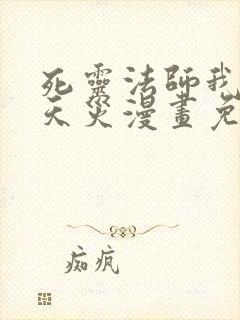 死靈法師我
天災漫畫免
痴疯